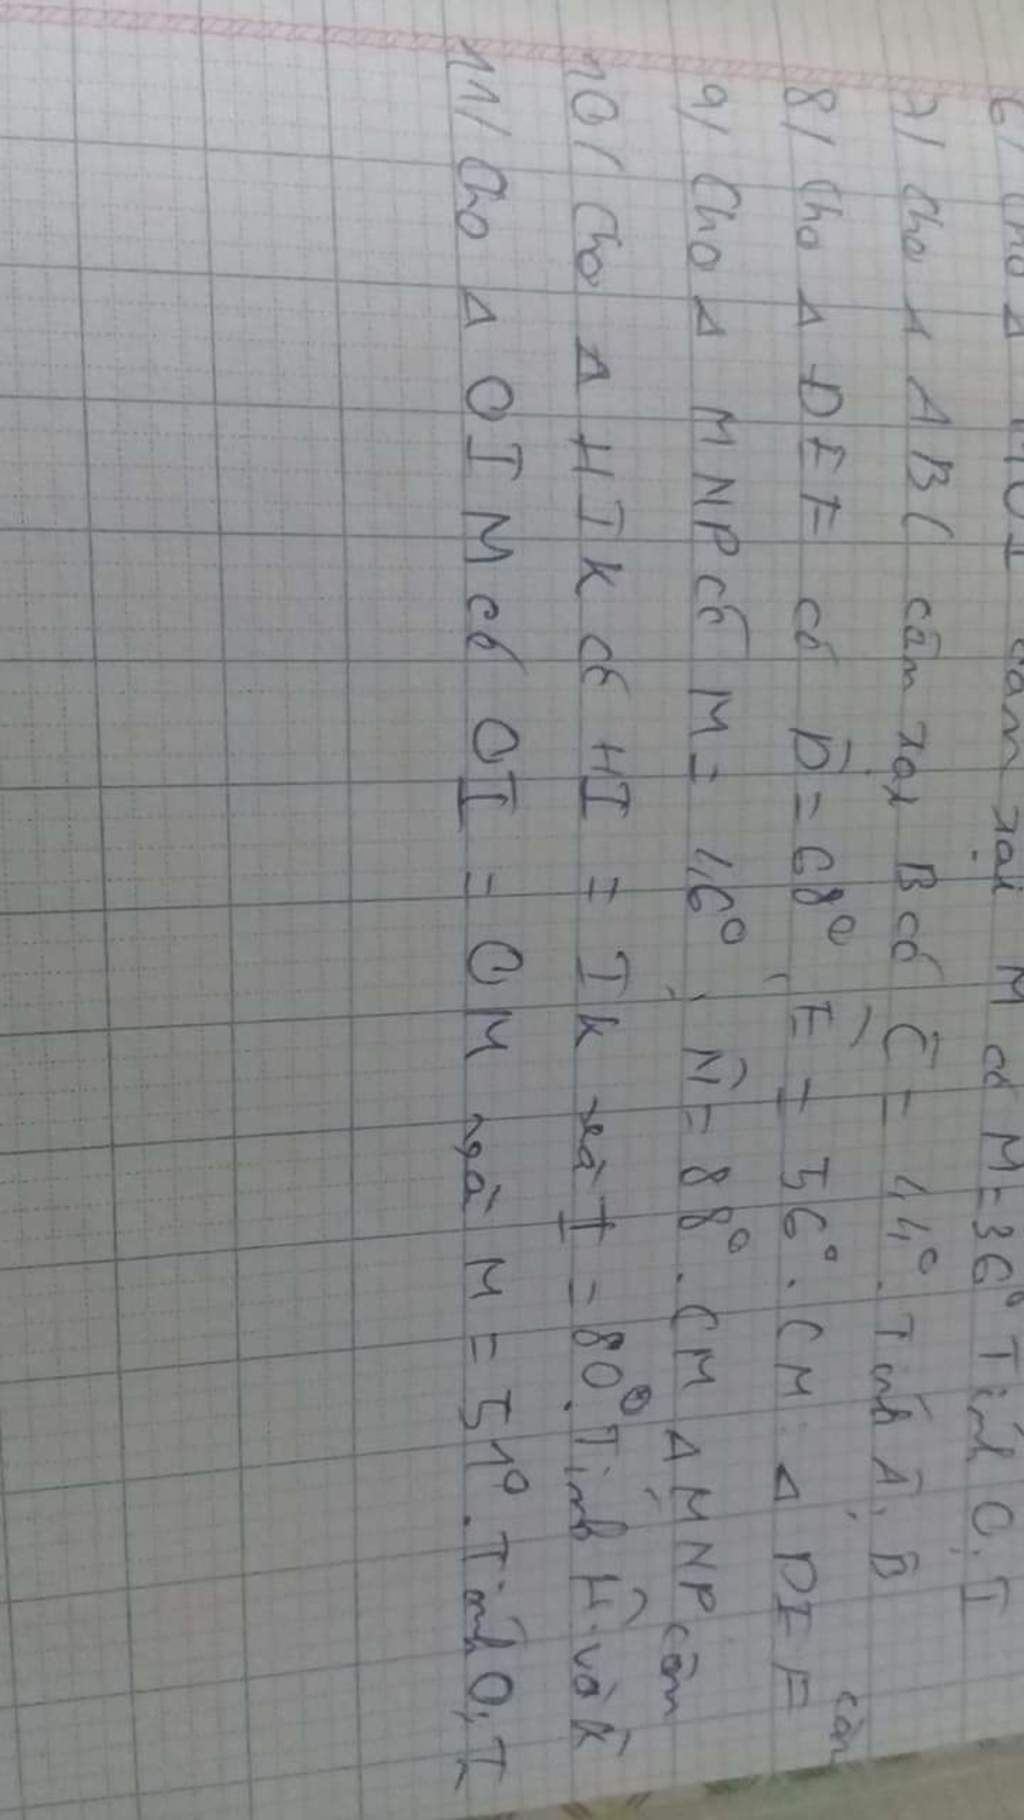 6/ Cho Δ MOI cân tại M có M = 36° Tính O, I
7/ Cho Δ ABC cân tại B có Ĉ = 44°. Tính Â, B̂
8/ Cho Δ DEF có D̂ = 68°, Ê = 56°. CM: Δ DEF cân
9/ Cho Δ MNP có M = 46°, N̂ = 88°. CM Δ MNP cân
10/ Cho Δ HIK có HI = IK và I = 80°. Tính Ĥ và K̂
11/ Cho Δ OIM có OI = OM và M = 51°. Tính O, I